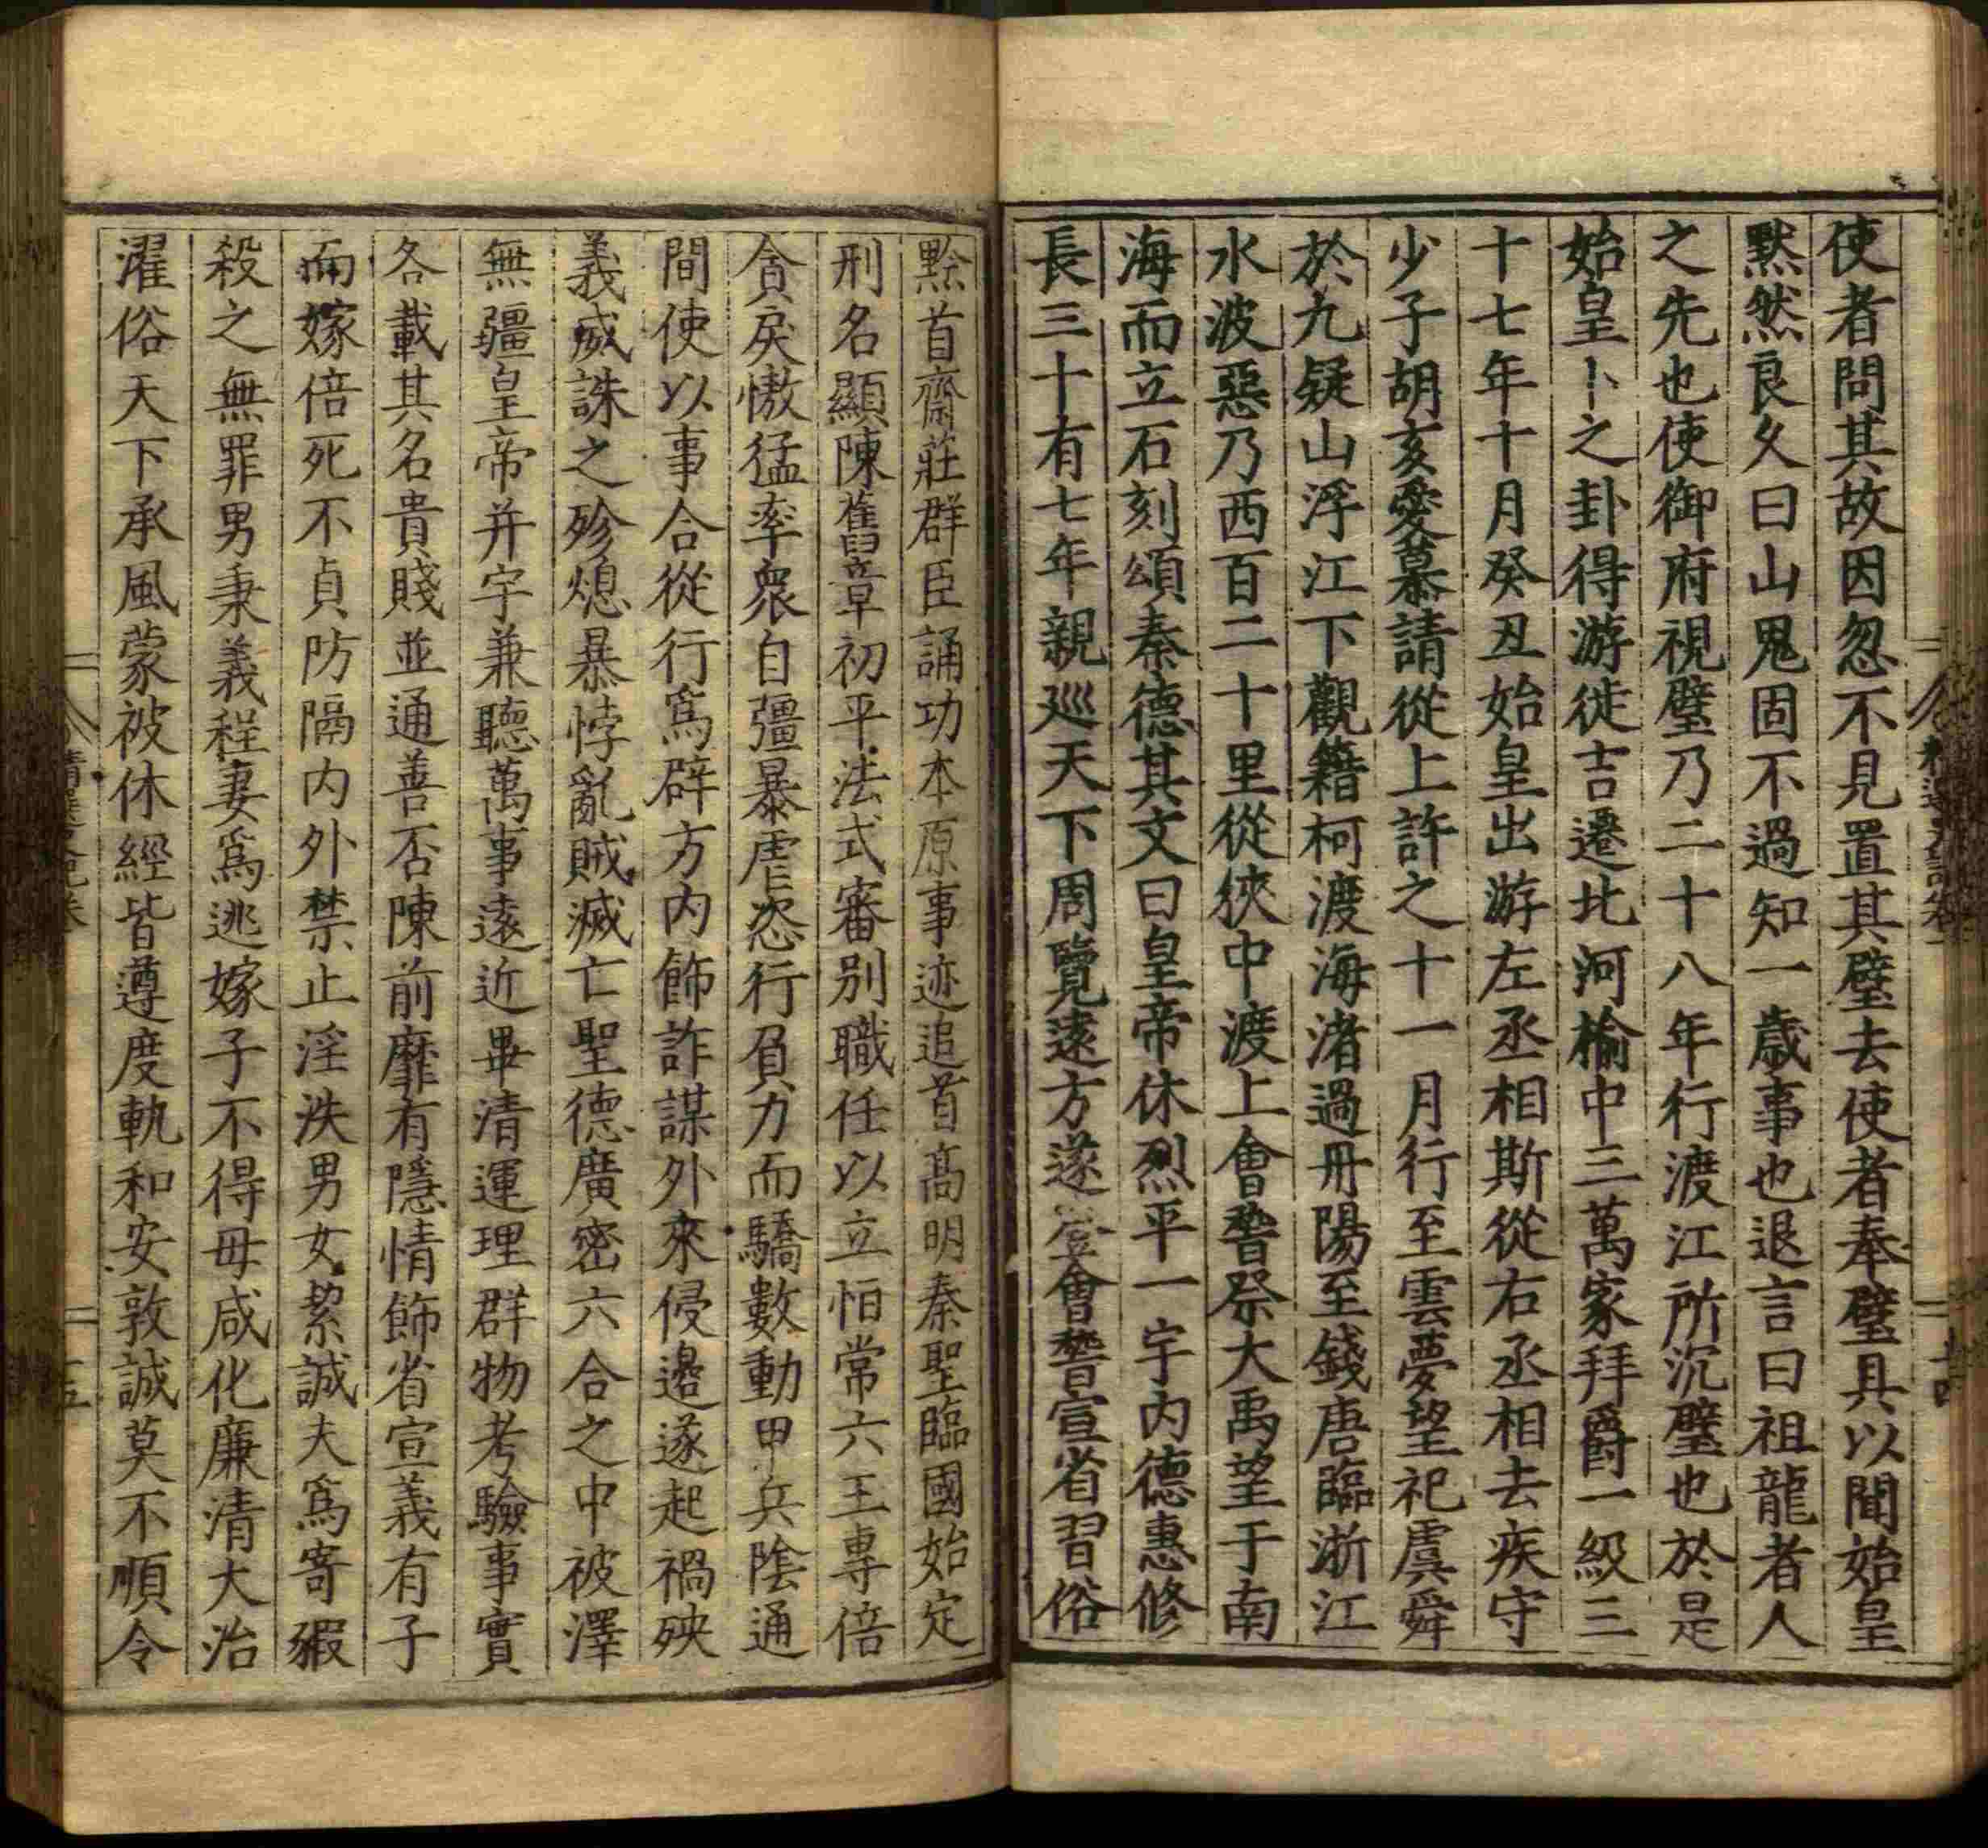 使者問其故因忽不見置其璧去使者奉璧具以聞始皇
默然良久曰山鬼固不過知一歲事也退言曰祖龍者人
之先也使御府視璧乃二十八年行渡江所沉璧也於是
始皇卜之卦得游徙吉遷北河榆中三萬家拜爵一級三
十七年十月癸丑始皇出游左丞相斯從右丞相去疾守
少子胡亥愛慕請從上許之十一月行至雲夢望祀虞舜
於九疑山浮江下觀籍柯渡海渚過丹陽至錢唐臨浙江
水波惡乃西百二十里從狹中渡上會稽祭大禹望于南
海而立石刻頌秦德其文曰皇帝休烈平一宇內德惠修
長三十有七年親巡天下周覽遠方遂登會稽宣省習俗
黔首齋莊群臣誦功本原事迹追首高明秦聖臨國始定
刑名顯陳舊章初平法式審別職任以立恒常六王專倍
貪戾慠猛率衆自彊暴虐恣行負力而驕數動甲兵陰通
間使以事合從行爲辟方內飾詐謀外來侵邊遂起禍殃
義威誅之殄熄暴悖亂賊滅亡聖德廣密六合之中被澤
無疆皇帝并宇兼聽萬事遠近畢清運理群物考驗事實
各載其名貴賤並通善否陳前靡有隱情飾省宣義有子
而嫁倍死不貞防隔內外禁止淫泆男女絜誠夫爲寄豭
殺之無罪男秉義程妻爲逃嫁子不得母咸化廉清大治
濯俗天下承風蒙被休經皆遵度軌和安敦誠莫不順令